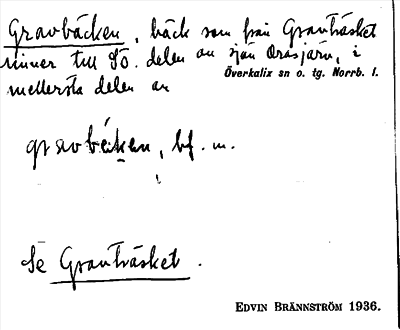 Gravbäcken, bäck som från Gravträsket
rinner till SÖ. delen av sjön Orasjärv, i
mellersta delen av
Överkalix sn o. tg. Norrb. l.
gravbäcken, bf. m.
Se Gravträsket.
EDVIN BRÄNNSTRÖM 1936.